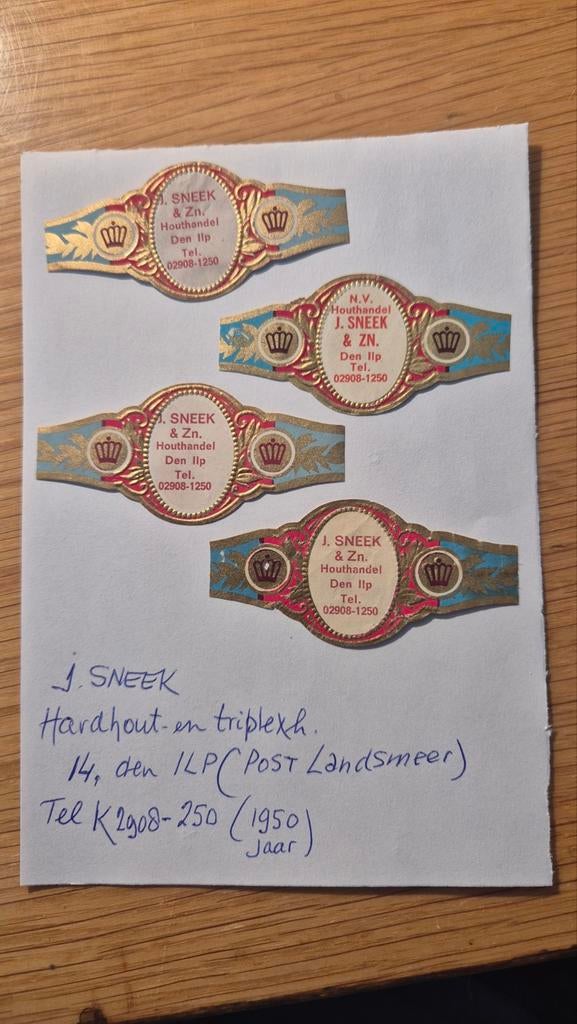 J. SNEEK
& Zn.
Houthandel
Den Ilp
Tel.
02908-1250
N.V.
Houthandel
J. SNEEK
& ZN.
Den Ilp
Tel.
02908-1250
J. SNEEK
& Zn.
Houthandel
Den Ilp
Tel.
02908-1250
J. SNEEK
& Zn.
Houthandel
Den Ilp
Tel.
02908-1250
J. SNEEK
Hardhout-en triplexh.
14, den ILP (POST Landsmeer)
Tel K2908-250 (1950
jaar)